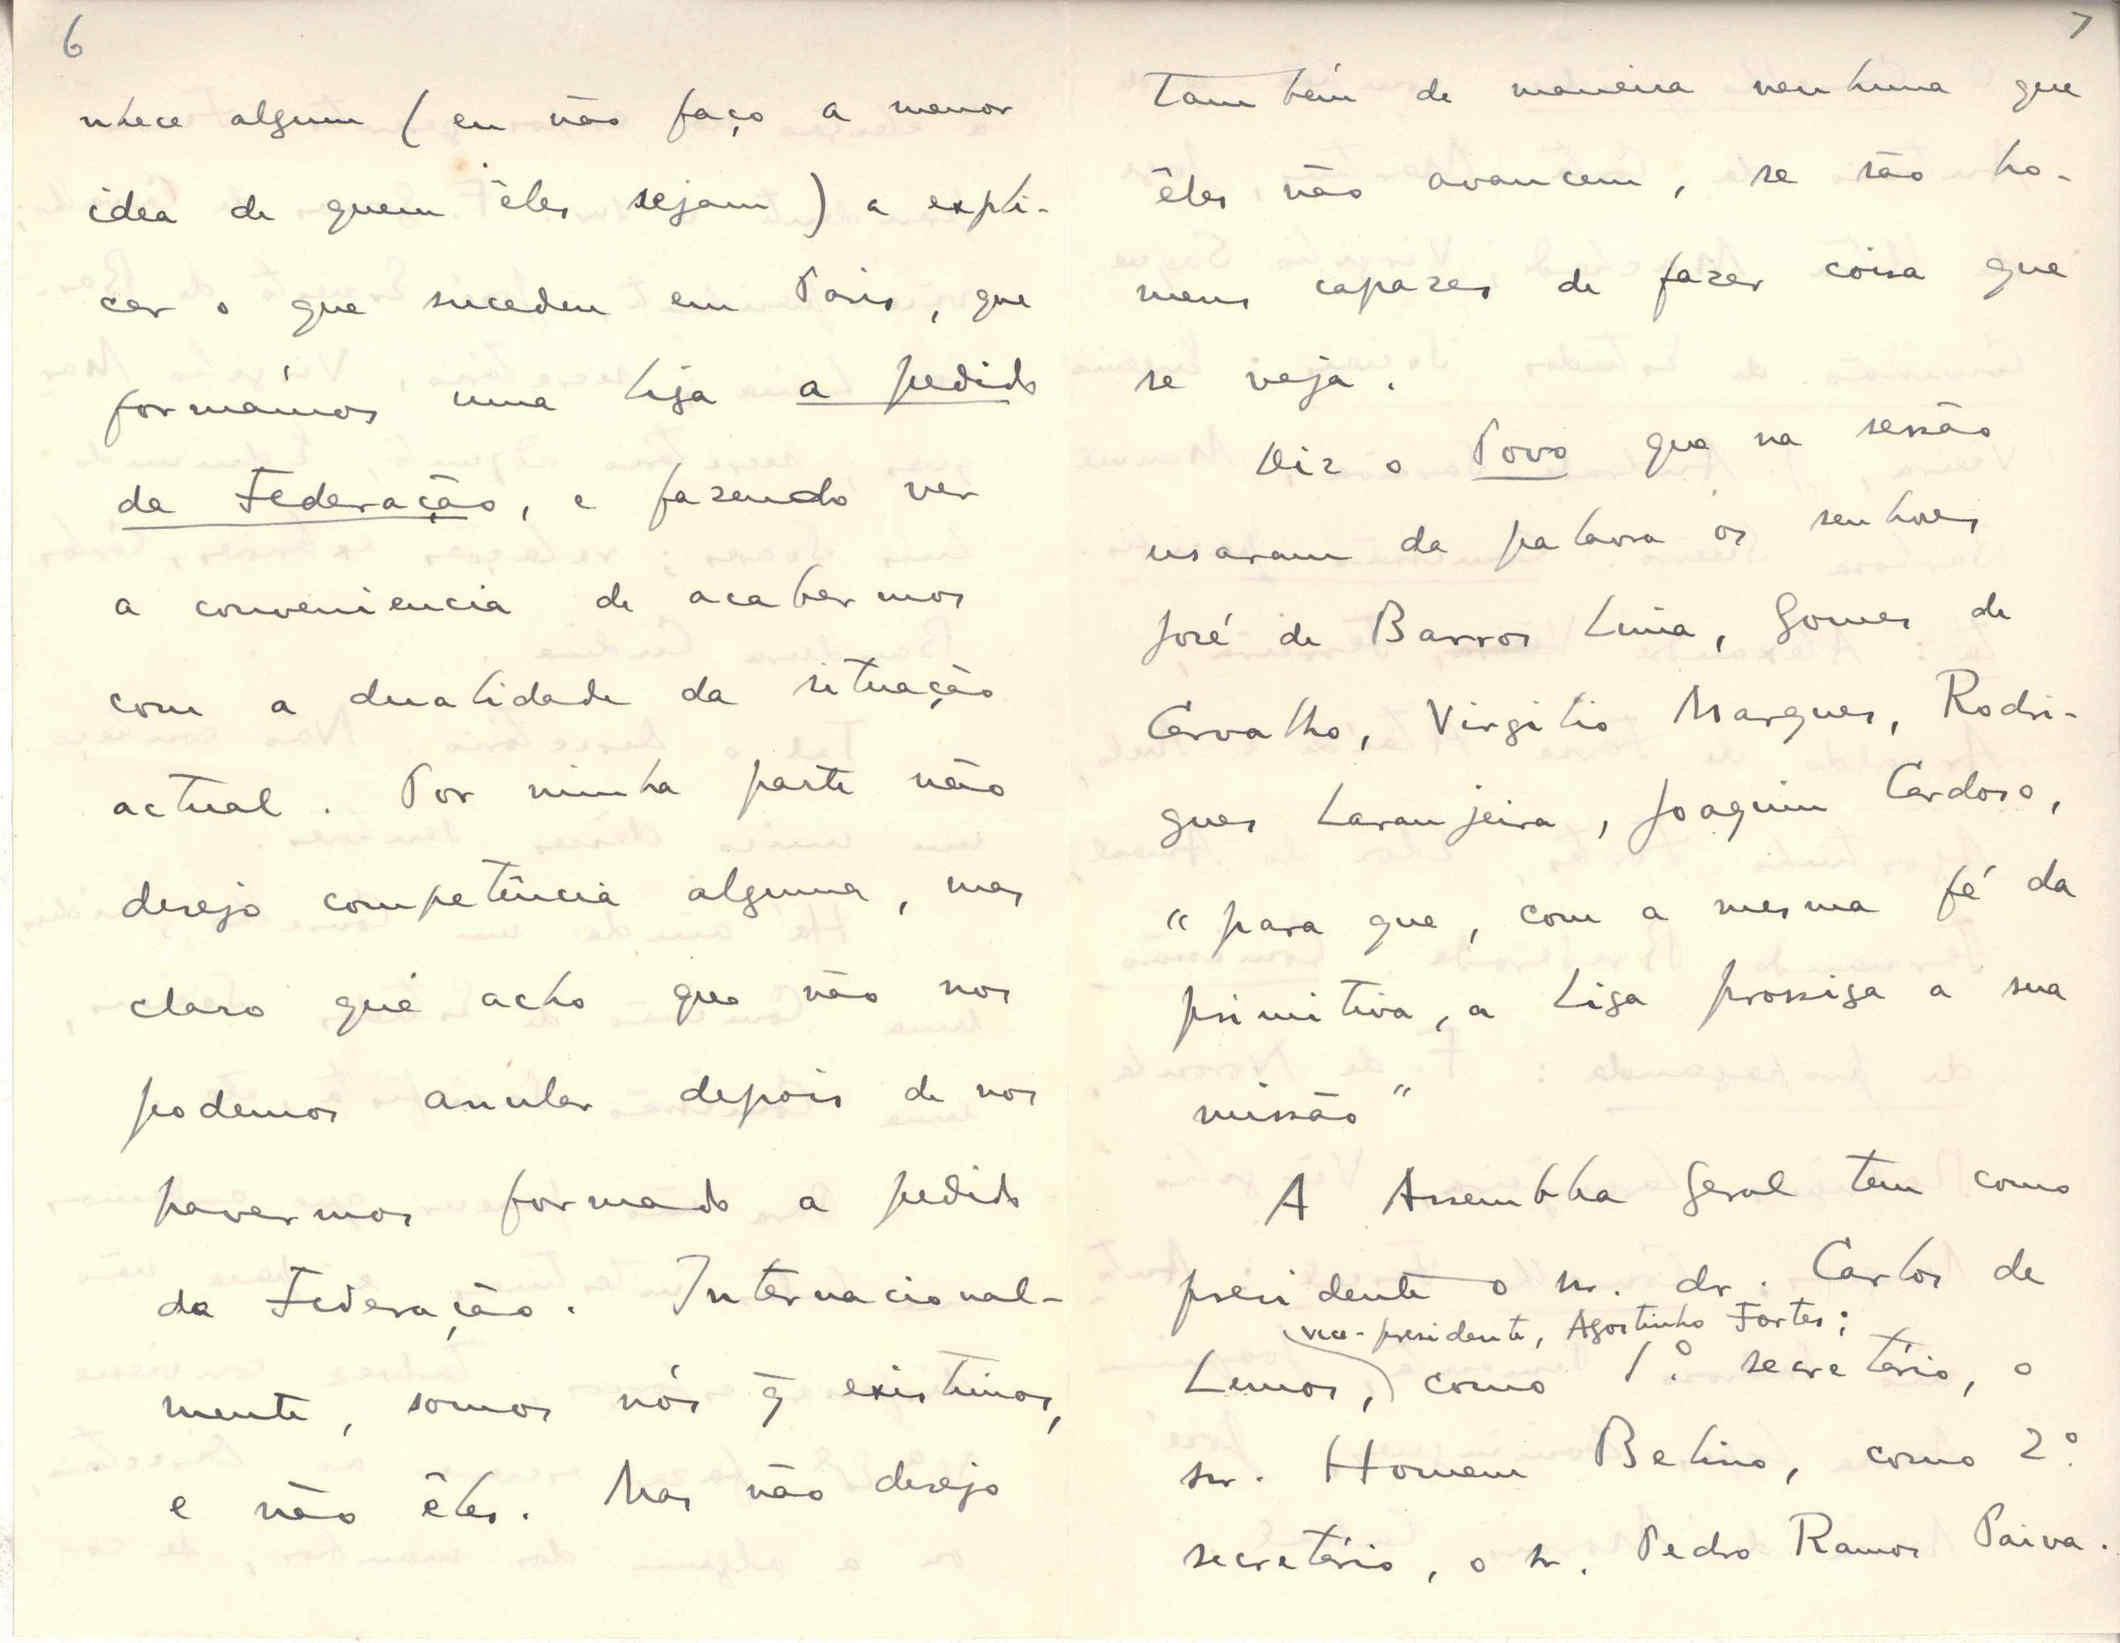 6
nhece algum (eu não faço a menor
idea de quem êles sejam) a expli-
car o que sucedeu em Paris, que
formámos uma Liga a pedido
da Federação, e fazendo ver
a conveniencia de acabarmos
com a dualidade da situação
actual. Por minha parte não
desejo competência alguma, mas
claro que acho que não nos
podemos anular depois de nos
havermos formado a pedido
da Federação. Internacional-
mente, somos nós q̃ existimos,
e não êles. Mas não desejo
7
também de maneira nenhuma que
êles não avancem, se são ho-
mens capazes de fazer coisa que
se veja.
Diz o Povo que na sessão
usaram da palavra os senhores
José de Barros Lima, Gomes de
Carvalho, Virgilio Marques, Rodri-
gues Laranjeira, Joaquim Cardoso,
"para que, com a mesma fé da
primitiva, a Liga prossiga a sua
missão"
A Assembleia Geral tem como
presidente o sr. dr. Carlos de
vice-presidente, Agostinho Fortes;
Lemos, como 1.º secretário, o
sr. Homem Belino, como 2.º
secretário, o sr. Pedro Ramos Paiva.